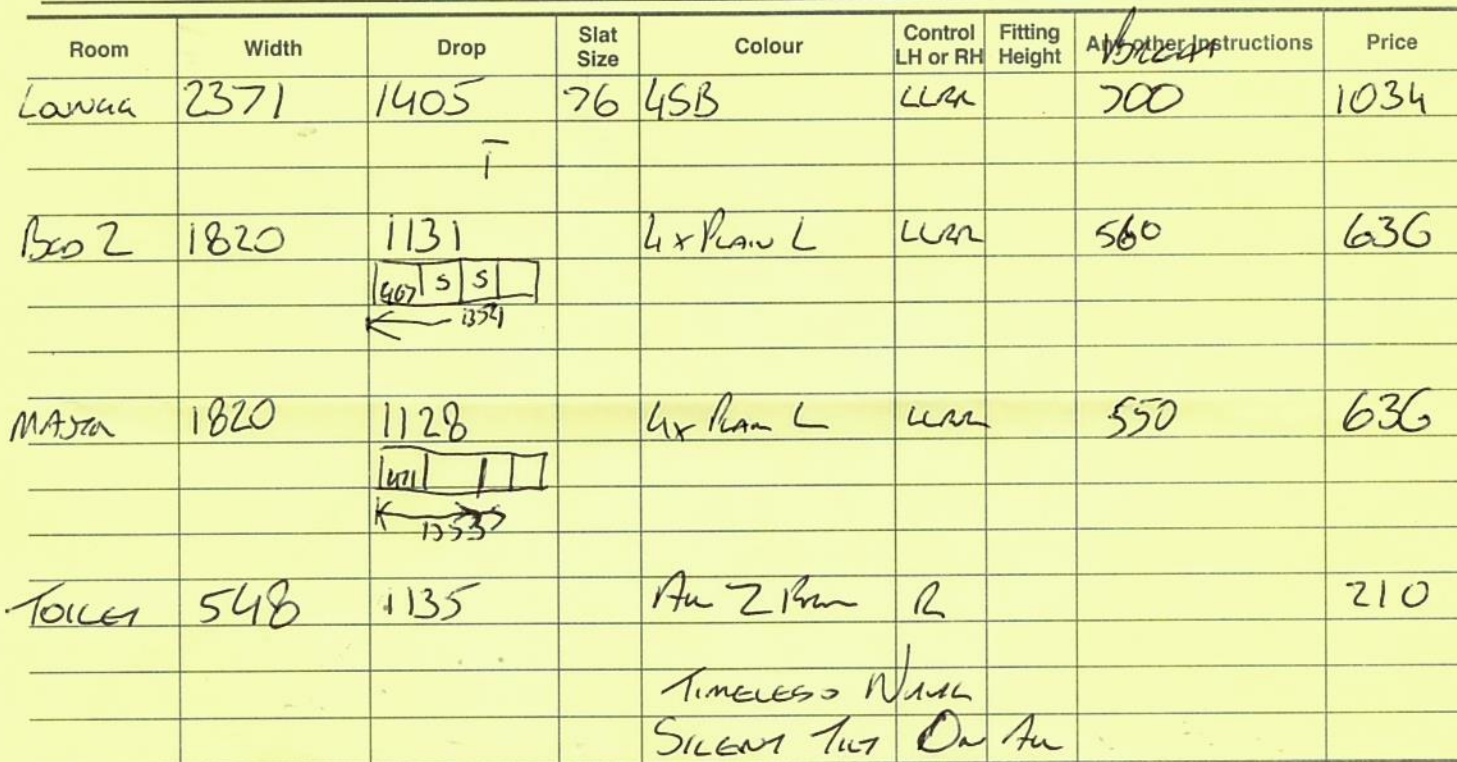 Room Width Drop Slat Size Colour Control LH or RH Fitting Height Any other Instructions Price
2371 1405 76 4SB LLRR 700 1034
T
Bed 2 1820 1131 4x Plain L LLRR 560 636
467 S S
1820 1128 4x Plain L LLRR 550 636
471
Toilet 548 1135 R 210
Timeless
Silent Tilt On All